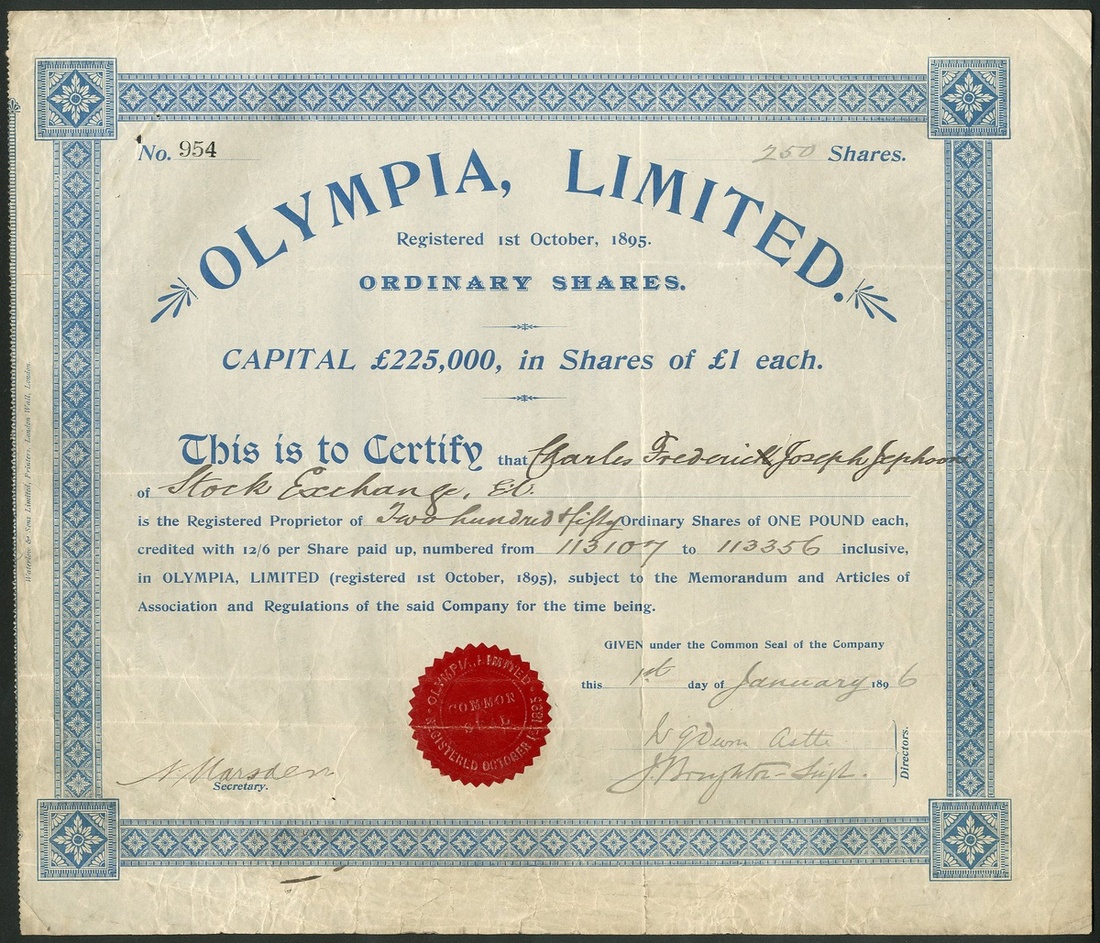 No. 954
250 Shares.
OLYMPIA, LIMITED.
Registered 1st October, 1895.
ORDINARY SHARES.
CAPITAL £225,000, in Shares of £1 each.
This is to Certify that Charles Frederick Joseph Jephson
of Stock Exchange, E.C.
is the Registered Proprietor of Two hundred & fifty Ordinary Shares of ONE POUND each,
credited with 12/6 per Share paid up, numbered from 113107 to 113356 inclusive,
in OLYMPIA, LIMITED (registered 1st October, 1895), subject to the Memorandum and Articles of
Association and Regulations of the said Company for the time being.
GIVEN under the Common Seal of the Company
this 1st day of January 1896
Directors.
Marsden
Secretary.
OLYMPIA, LIMITED
COMMON
SEAL
REGISTERED OCTOBER 1 1895
Waterlow & Sons Limited, Printers, London Wall, London.